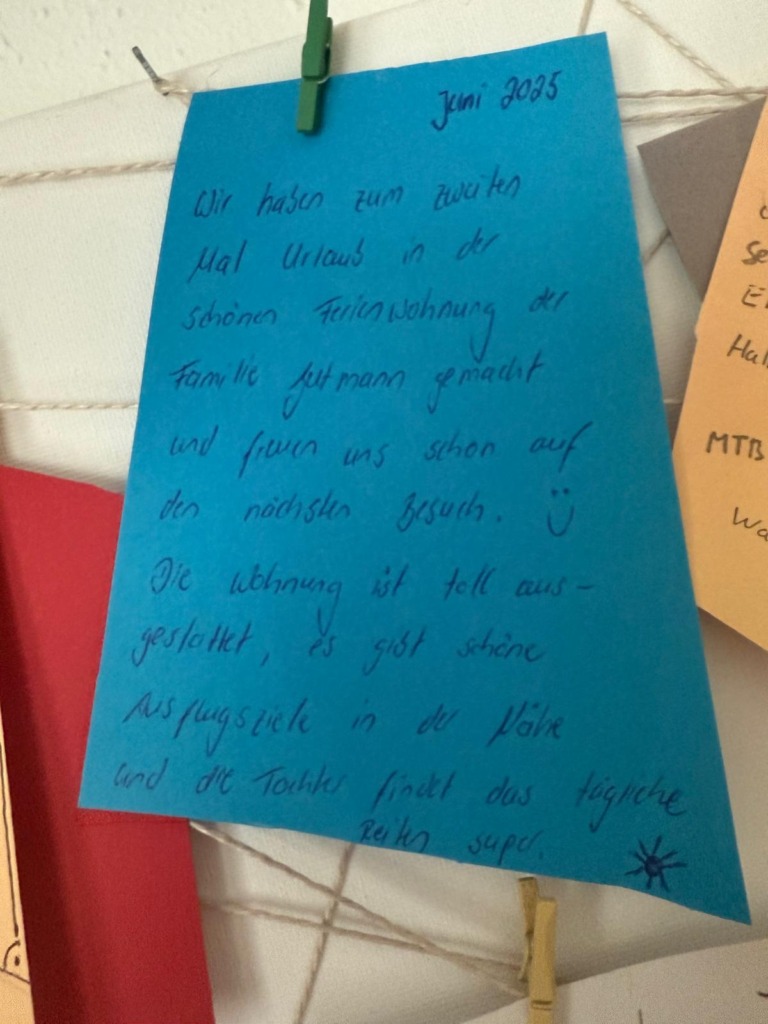 Juni 2025
Wir haben zum zweiten
Mal Urlaub in der
schönen Ferienwohnung der
Familie Gutmann gemacht
und freuen uns schon auf
den nächsten Besuch.
Die Wohnung ist toll aus-
gestattet, es gibt schöne
Ausflugsziele in der Nähe
und die Tochter findet das tägliche
Reiten super.
MTB